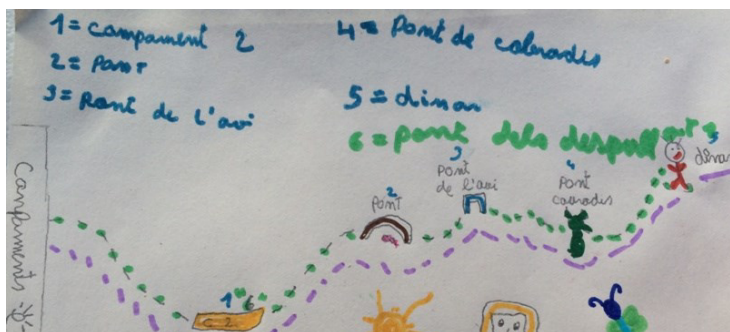 1 = Campament 2
2 = Pont
3 = Pont de l'avi
4 = Pont de cabradis
5 = dinar
6 = pont dels despullats
Campaments
1
6
2
Pont
3
Pont
de l'avi
4
Pont
cabradis
5
dinar